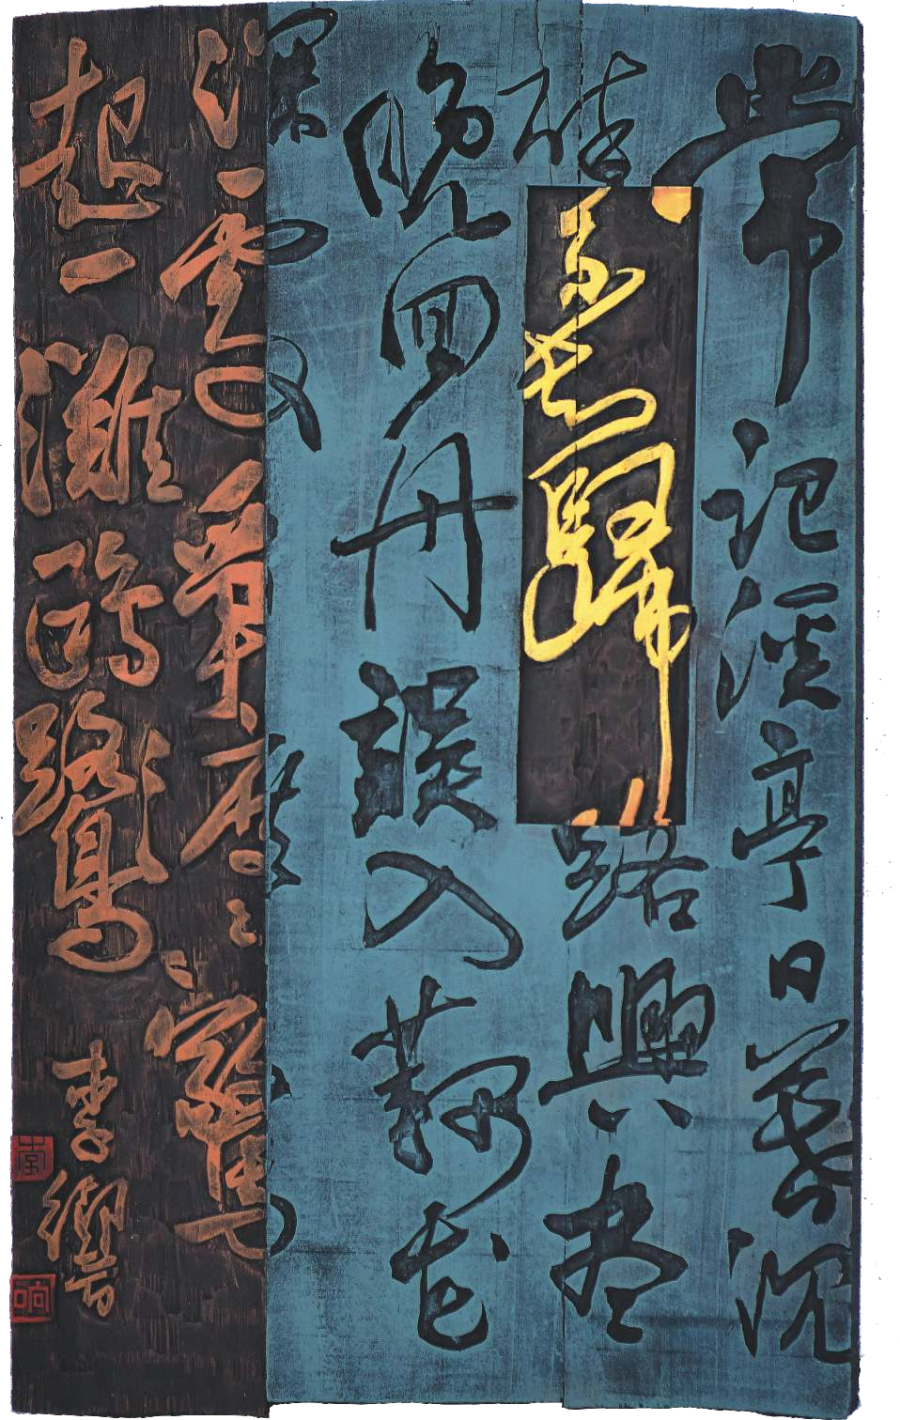 常記溪亭日暮沉
醉不知歸路興盡
晚回舟誤入藕花
深處爭渡〻驚
起一灘鷗鷺
李響
李
响